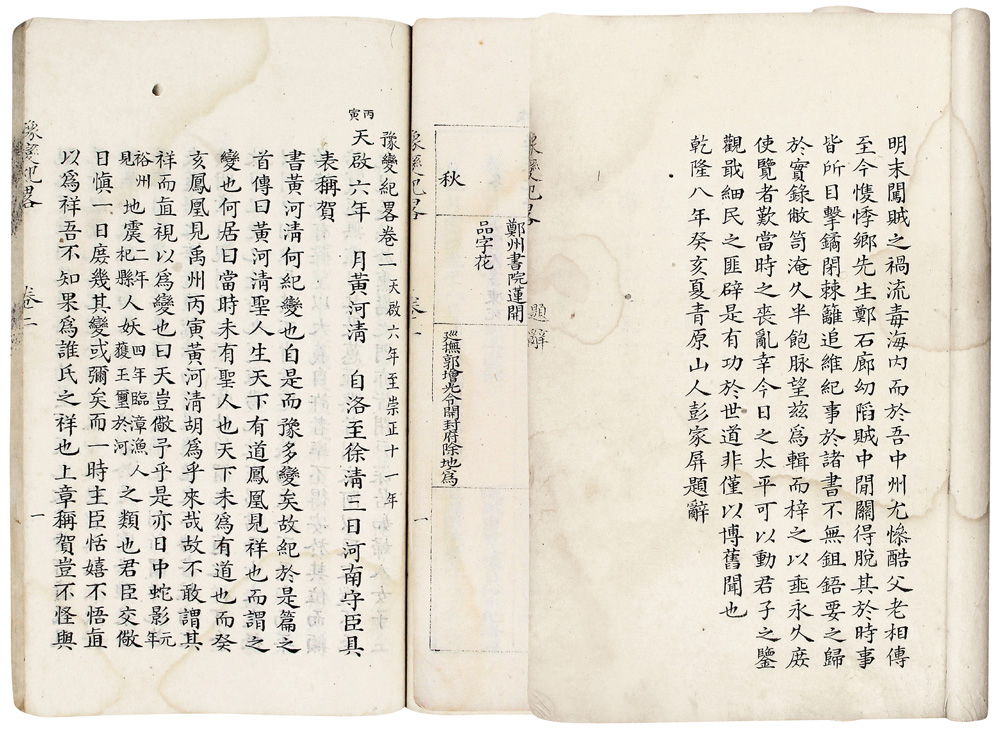 明末闖賊之禍流毒海內而於吾中州尤慘酷父老相傳
至今慅悸鄉先生鄭石廊幼陷賊中閒關得脫其於時事
皆所目擊鐍閉棘籬追維紀事於諸書不無鉏鋙要之歸
於實錄敝笥淹久半飽脉望兹為輯而梓之以垂永久庻
使覽者歎當時之喪亂幸今日之太平可以動君子之鑒
觀戢細民之匪辟是有功於世道非僅以博舊聞也
乾隆八年癸亥夏青原山人彭家屏題辭
題辭
秋
鄭州書院蓮開
品字花
廵撫郭增光令開封府除地為
一
豫變紀畧卷二 天啟六年至崇正十一年
丙寅
天啟六年 月黃河清 自洛至徐清三日河南守臣具
表稱賀
書黃河清何紀變也自是而豫多變矣故紀於是篇之
首傳曰黃河清聖人生天下有道鳳凰見祥也而謂之
變也何居曰當時未有聖人也天下未為有道也而癸
亥鳳凰見禹州丙寅黃河清胡為乎來哉故不敢謂其
祥而直視以為變也曰天豈儆予乎是亦日中蛇影元年
裕州地震二年杞縣人妖四年臨漳漁人
見獲王璽於河之類也君臣交儆
日愼一日庻幾其變或彌矣而一時主臣恬嬉不悟直
以為祥吾不知果為誰氏之祥也上章稱賀豈不怪與
豫變紀畧
卷二
一